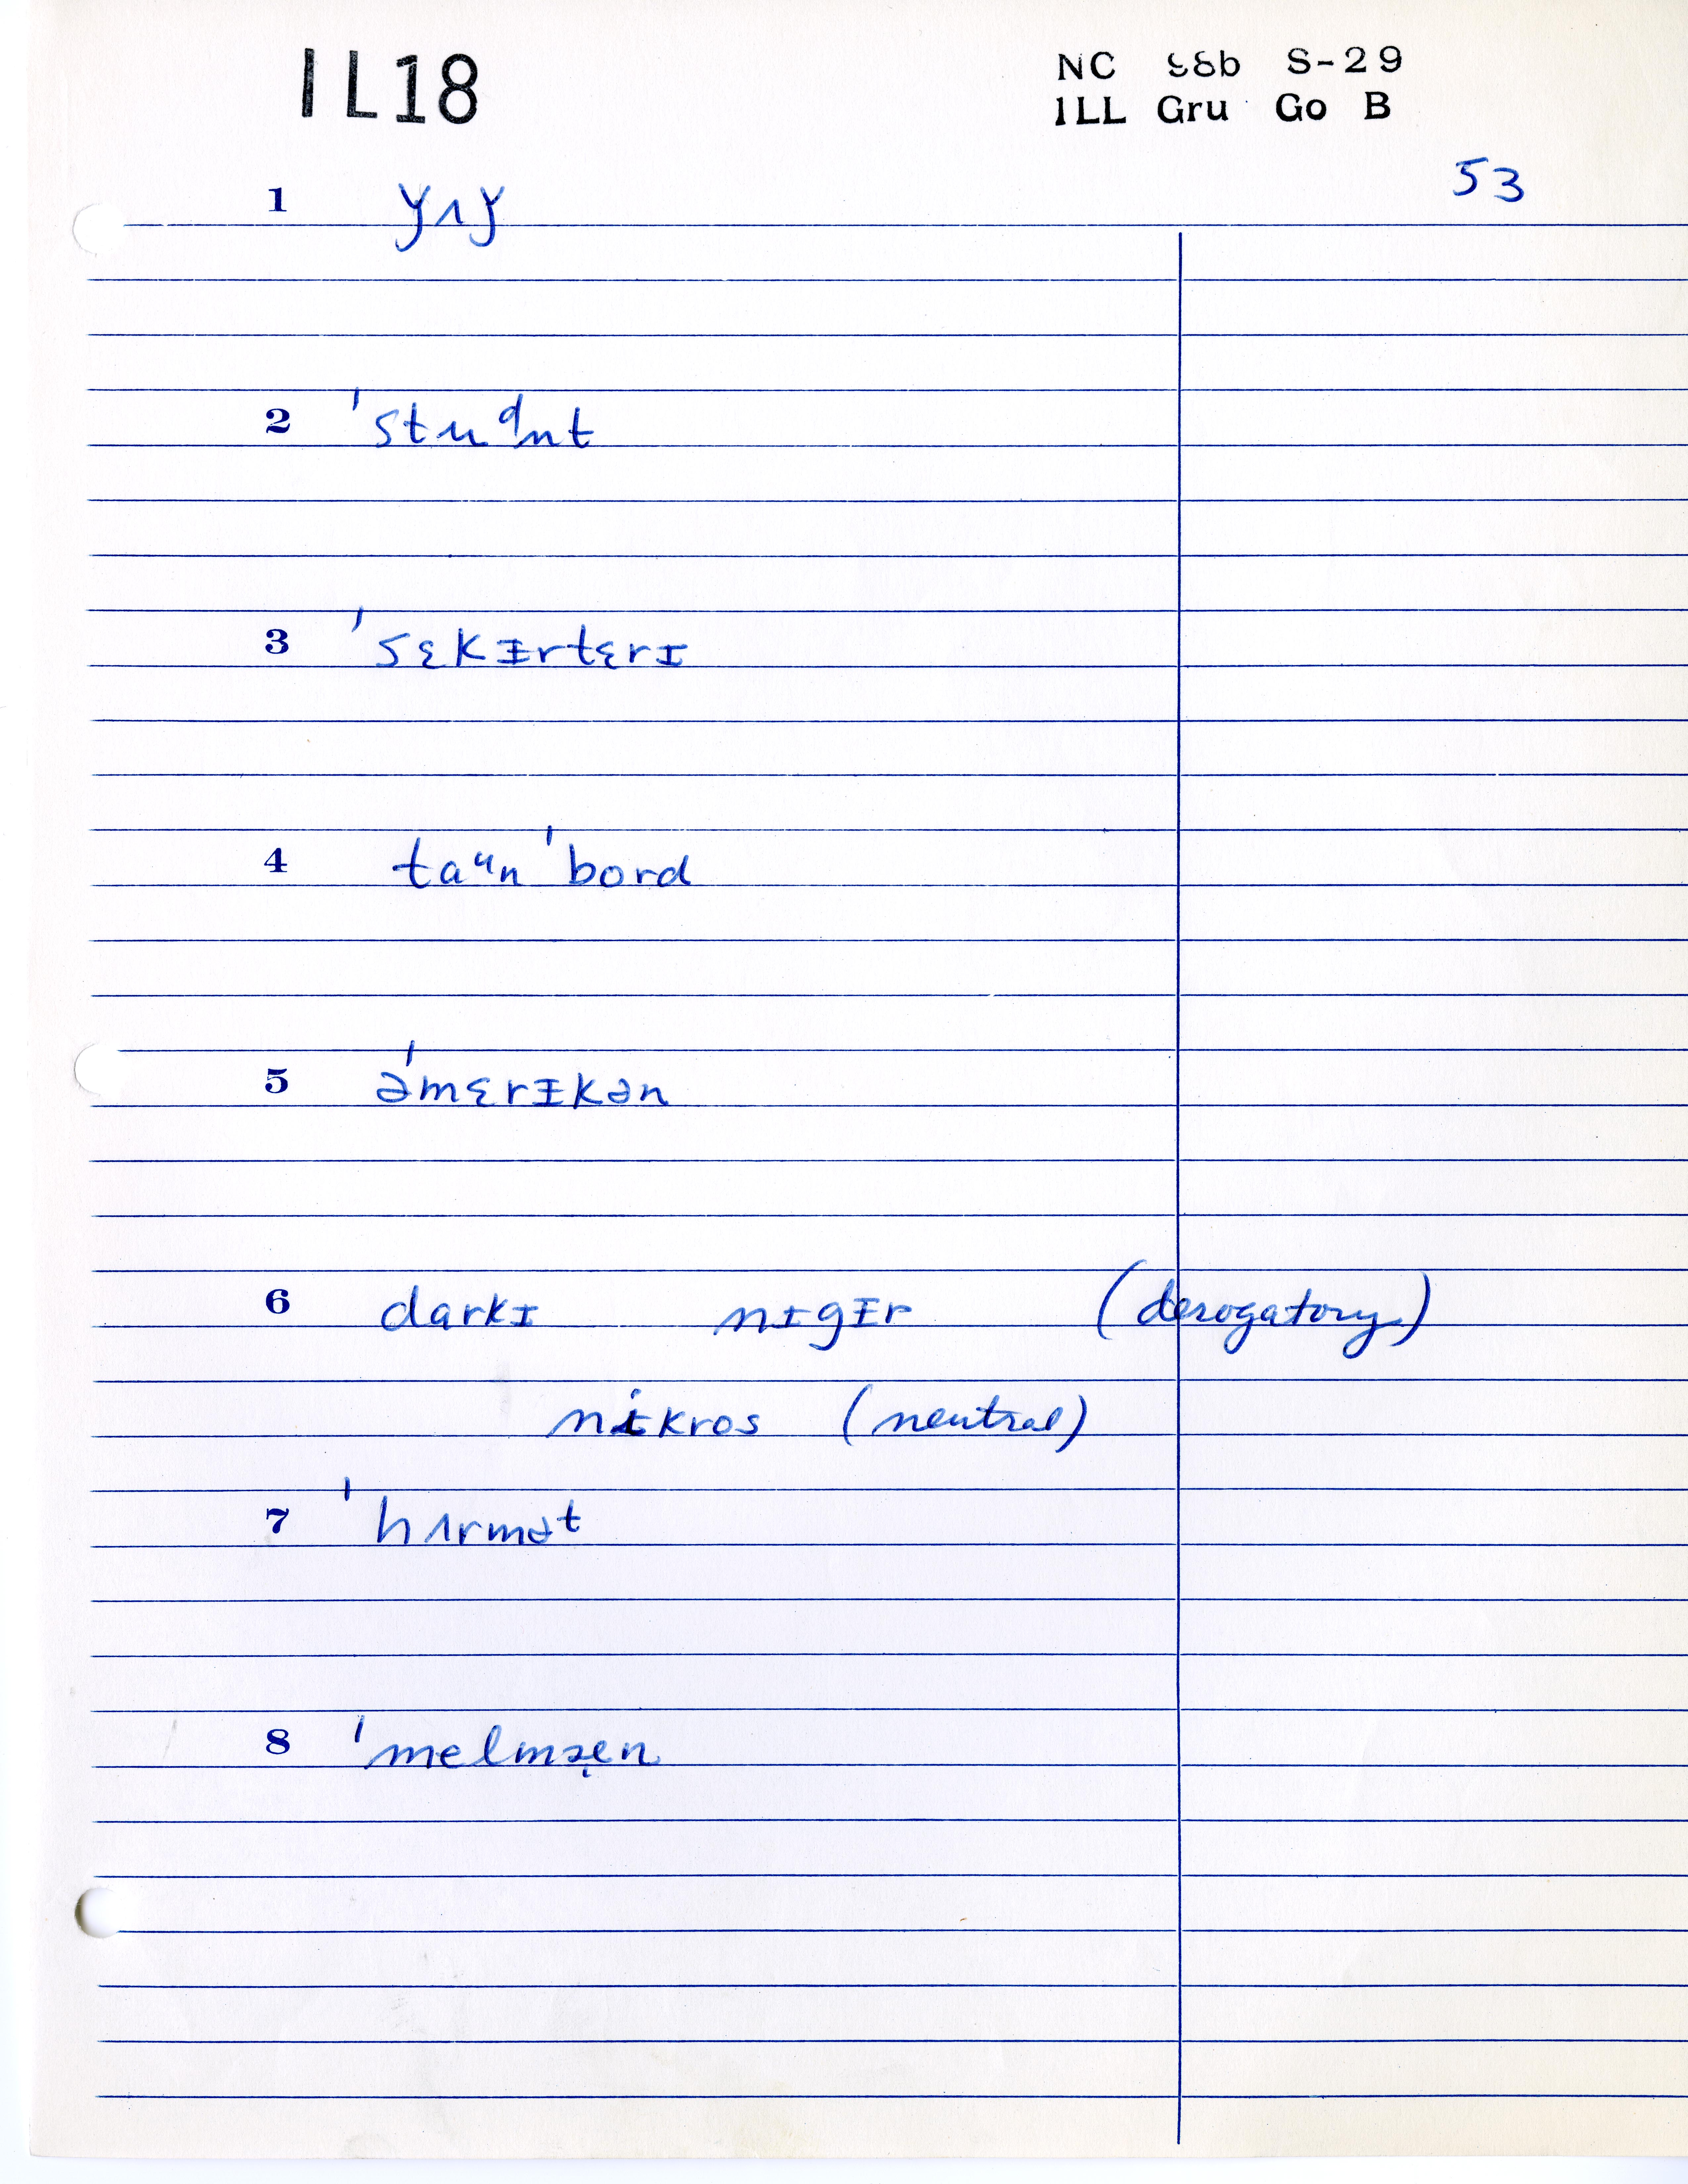 IL18
NC 88b S-29
ILL Gru Go B
53
1 ǰʌǰ
2 ˈstudn̩t
3 ˈsɛkᵻrtɛrɪ
4 taᵘn ˈbord
5 əˈmɛrᵻkən
6 darkɪ nɪgᵻr (derogatory)
nikros (neutral)
7 ˈhʌrmət
8 ˈmelmæ̨n